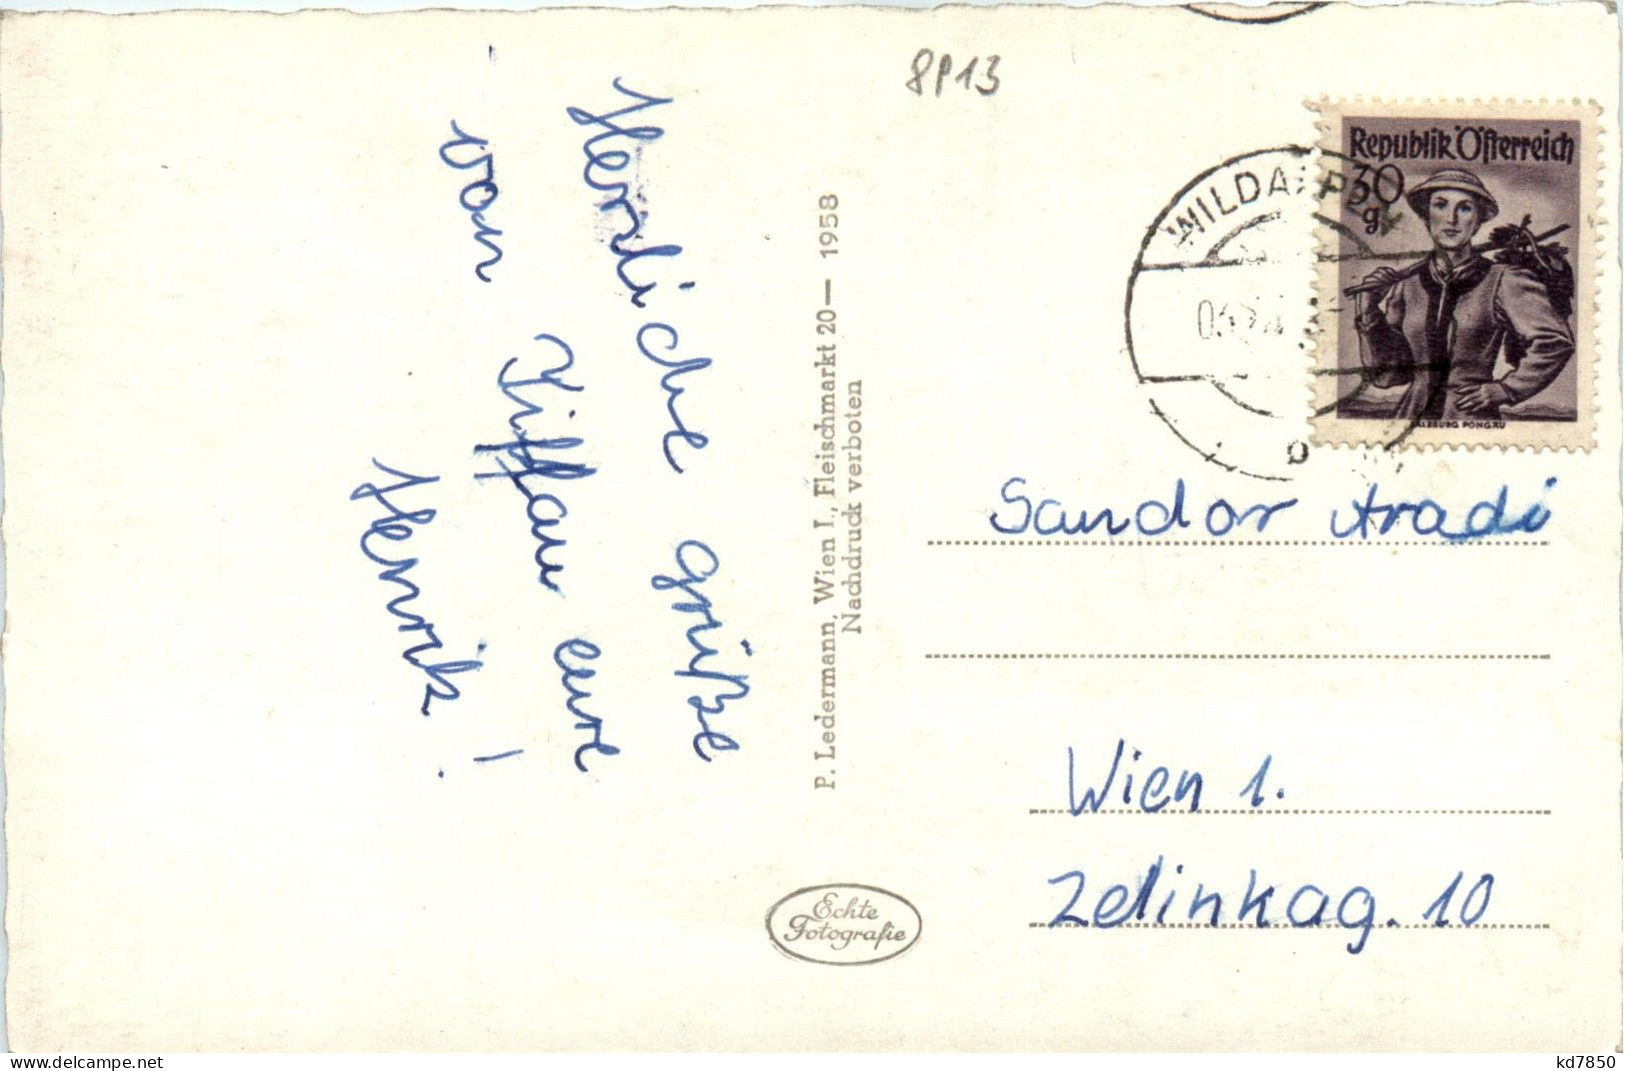 8P13
Herzliche grüße
von
eure
Henrik!
P. Ledermann, Wien I., Fleischmarkt 20— 1958
Nachdruck verboten
Echte
Fotografie
Republik Österreich
30
g
SALZBURG PONGAU
WILDALPEN
b
Sandor Aradi
Wien 1.
Zelinkag. 10
www.delcampe.net
kd7850